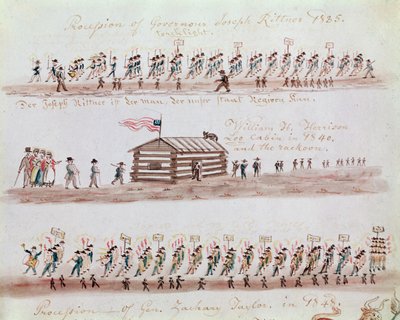 Procession of Governour Joseph Rittner 1835.
torchlight.
Der Joseph Rittner ist der man, der unser staat Regieren kann.
William H. Harrison
Log Cabin in 1840.
and the rackoon.
Procession of Gen. Zachary Taylor. in 1848.